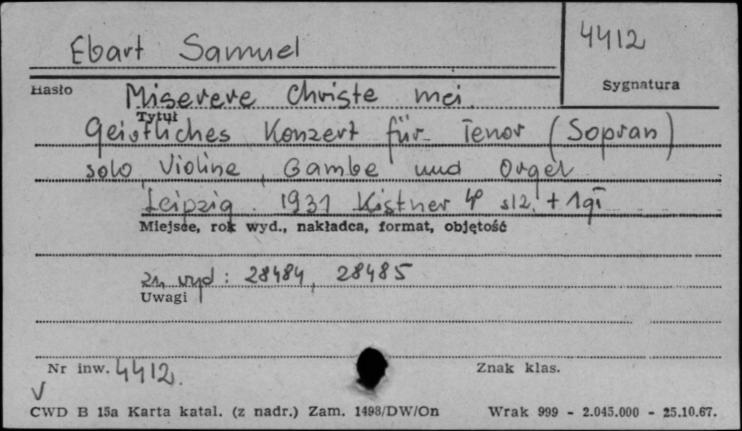 Ebart Samuel
4412
Hasło
Sygnatura
Miserere Christe mei
Tytuł
Geistliches Konzert für Tenor (Sopran)
solo, Violine, Gambe und Orgel
Leipzig 1931 Kistner 4° s12. +
Miejsce, rok wyd., nakładca, format, objętość
zn wyd: 28484, 28485
Uwagi
Nr inw. 4412.
Znak klas.
V
CWD B 15a Karta katal. (z nadr.) Zam. 1498/DW/On Wrak 999 - 2.045.000 - 25.10.67.